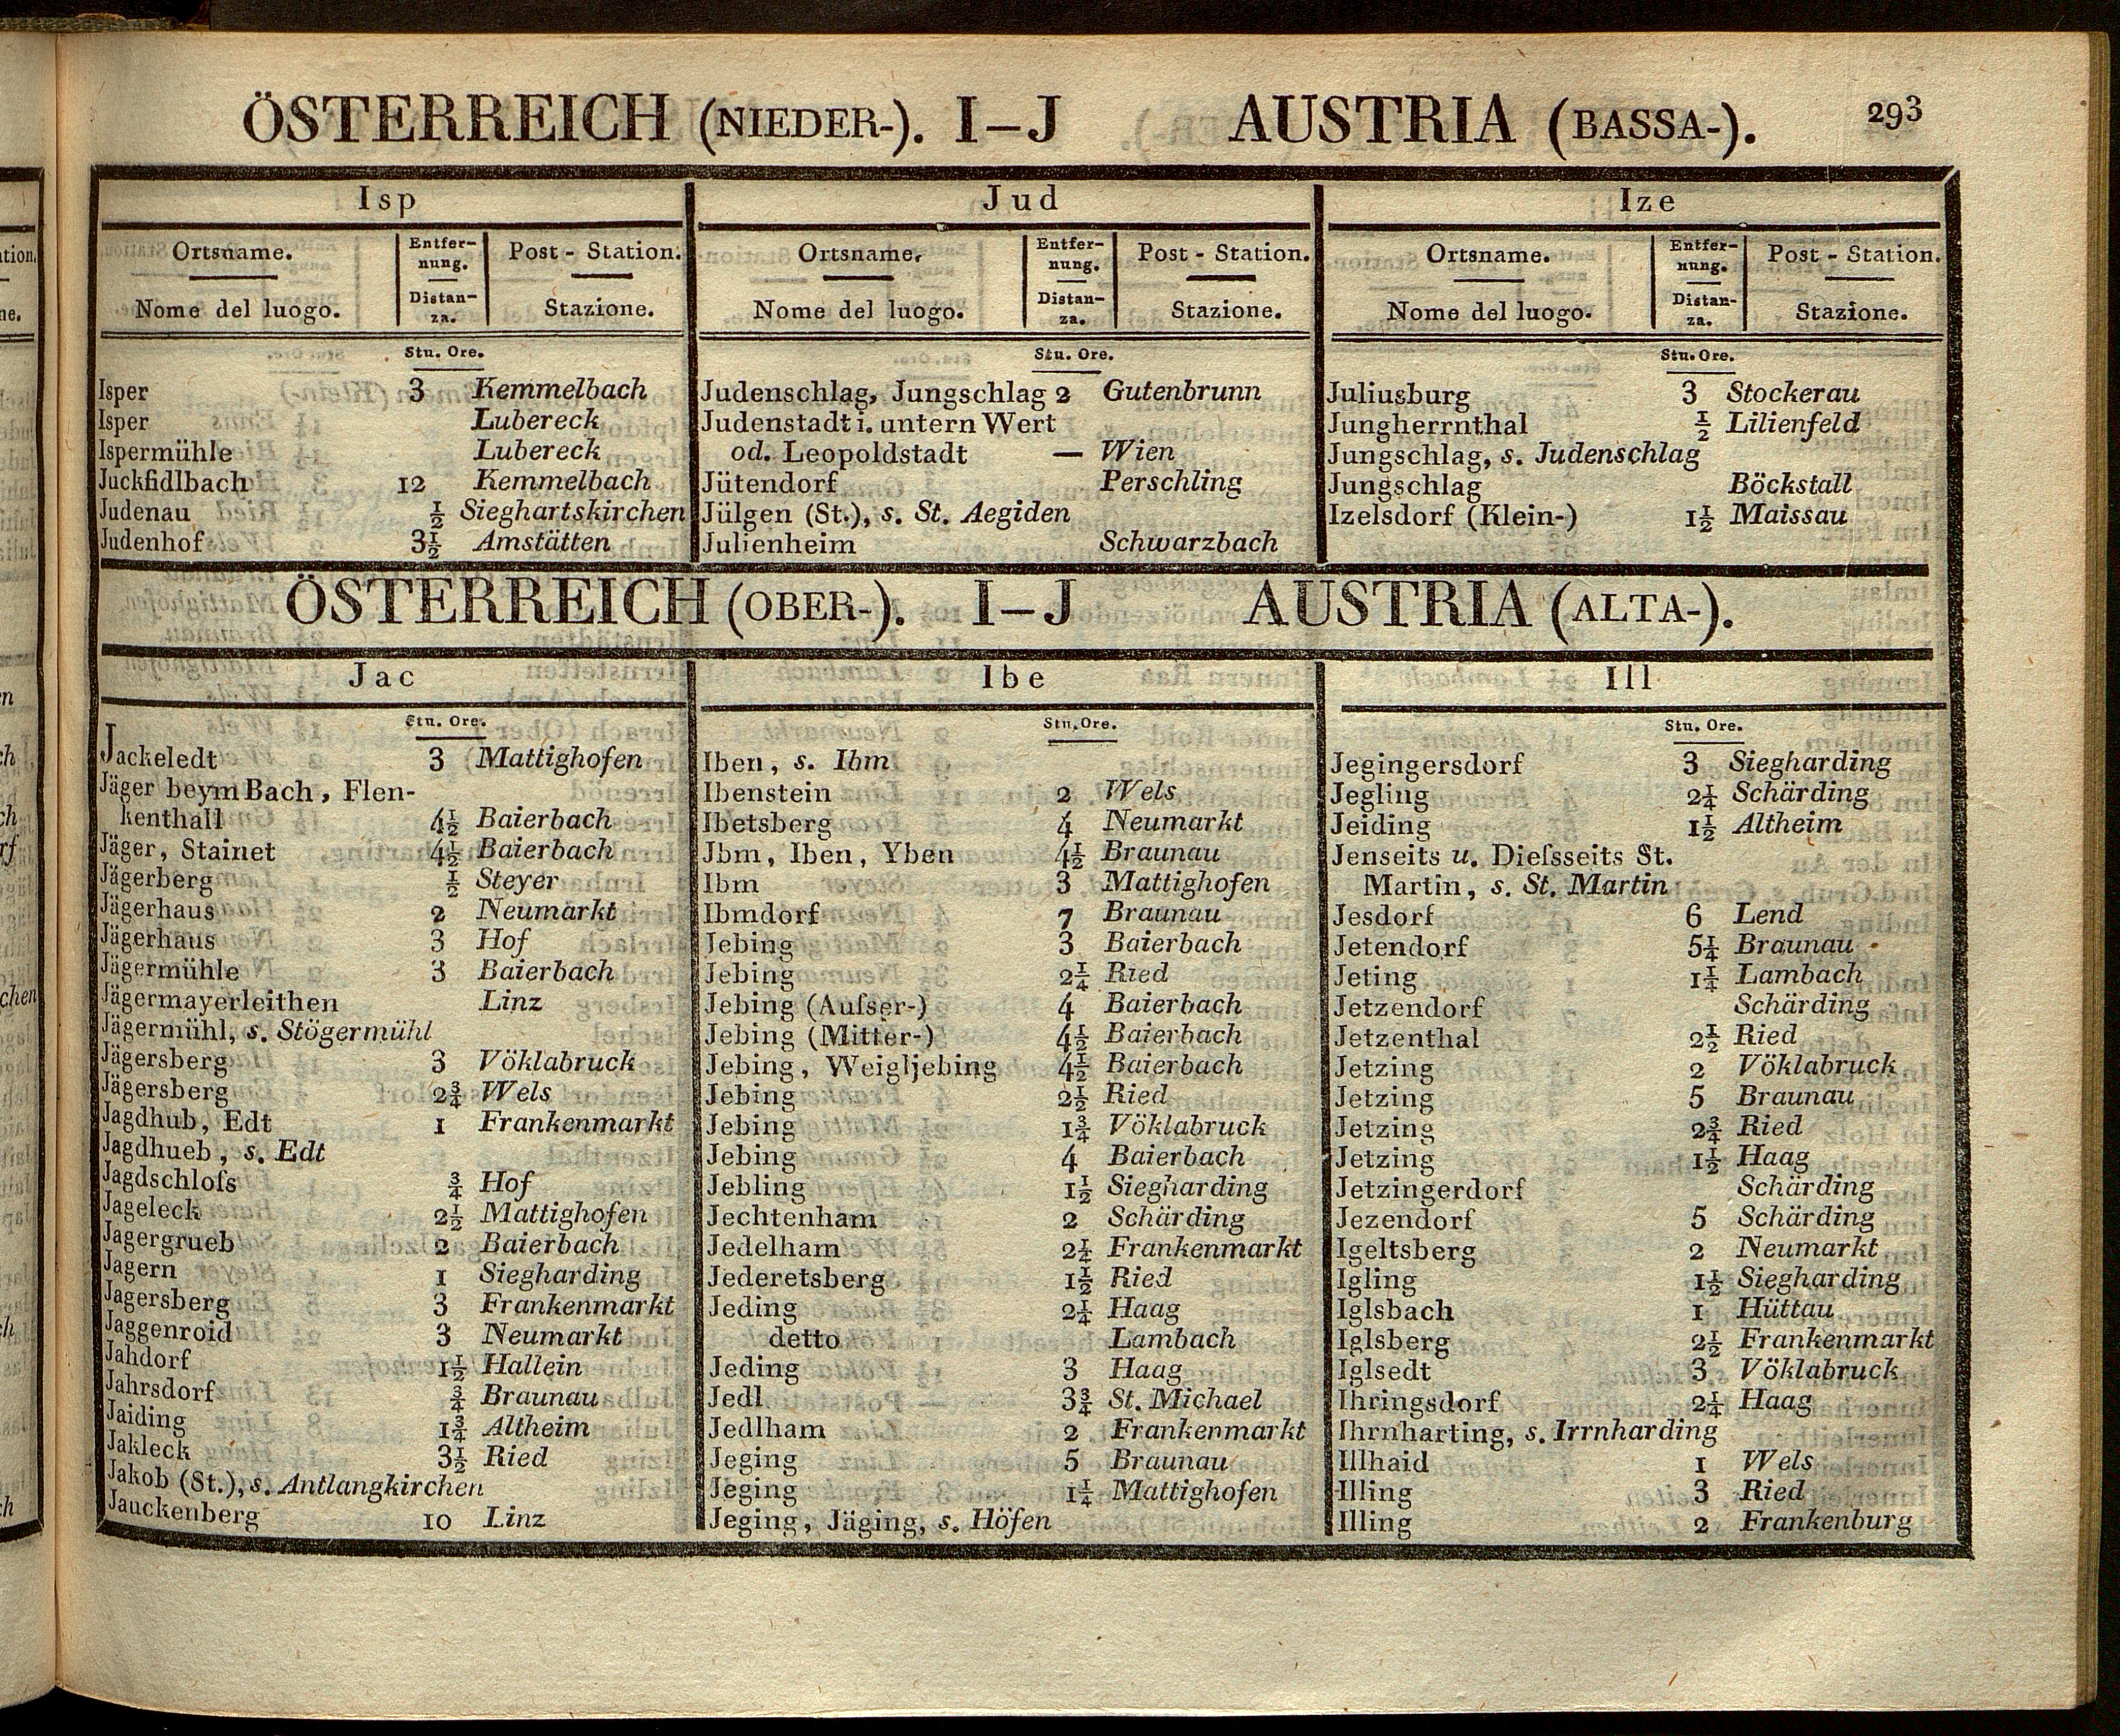 ÖSTERREICH (NIEDER-). I–J AUSTRIA (BASSA-). 293
Isp
Ortsname. Entfer- Post - Station.
nung.
Nome del luogo. Distan- Stazione.
za.
Stu. Ore.
Isper 3 Kemmelbach
Isper Lubereck
Ispermühle Lubereck
Juckfidlbach 12 Kemmelbach
Judenau ½ Sieghartskirchen
Judenhof 3½ Amstätten
Jud
Ortsname. Entfer- Post - Station.
nung.
Nome del luogo. Distan- Stazione.
za.
Stu. Ore.
Judenschlag, Jungschlag 2 Gutenbrunn
Judenstadt i. untern Wert
od. Leopoldstadt — Wien
Jütendorf Perschling
Jülgen (St.), s. St. Aegiden
Julienheim Schwarzbach
Ize
Ortsname. Entfer- Post - Station.
nung.
Nome del luogo. Distan- Stazione.
za.
Stu. Ore.
Juliusburg 3 Stockerau
Jungherrnthal ½ Lilienfeld
Jungschlag, s. Judenschlag
Jungschlag Böckstall
Izelsdorf (Klein-) 1½ Maissau
ÖSTERREICH (OBER-). I–J AUSTRIA (ALTA-).
Jac
Stu. Ore.
Jackeledt 3 Mattighofen
Jäger beym Bach, Flen-
kenthall 4½ Baierbach
Jäger, Stainet 4½ Baierbach
Jägerberg ½ Steyer
Jägerhaus 2 Neumarkt
Jägerhaus 3 Hof
Jägermühle 3 Baierbach
Jägermayerleithen Linz
Jägermühl, s. Stögermühl
Jägersberg 3 Vöklabruck
Jägersberg 2¾ Wels
Jagdhub, Edt 1 Frankenmarkt
Jagdhueb, s. Edt
Jagdschloſs ¾ Hof
Jageleck 2½ Mattighofen
Jagergrueb 2 Baierbach
Jagern 1 Siegharding
Jagersberg 3 Frankenmarkt
Jaggenroid 3 Neumarkt
Jahdorf 1½ Hallein
Jahrsdorf ¾ Braunau
Jaiding 1¾ Altheim
Jakleck 3½ Ried
Jakob (St.), s. Antlangkirchen
Jauckenberg 10 Linz
Ibe
Stu. Ore.
Iben, s. Ibm
Ibenstein 2 Wels
Ibetsberg 4 Neumarkt
Jbm, Iben, Yben 4½ Braunau
Ibm 3 Mattighofen
Ibmdorf 7 Braunau
Jebing 3 Baierbach
Jebing 2¼ Ried
Jebing (Auſser-) 4 Baierbach
Jebing (Mitter-) 4½ Baierbach
Jebing, Weigljebing 4½ Baierbach
Jebing 2½ Ried
Jebing 1¾ Vöklabruck
Jebing 4 Baierbach
Jebling 1½ Siegharding
Jechtenham 2 Schärding
Jedelham 2¼ Frankenmarkt
Jederetsberg 1½ Ried
Jeding 2¼ Haag
detto Lambach
Jeding 3 Haag
Jedl 3¾ St. Michael
Jedlham 2 Frankenmarkt
Jeging 5 Braunau
Jeging 1¼ Mattighofen
Jeging, Jäging, s. Höfen
Ill
Stu. Ore.
Jegingersdorf 3 Siegharding
Jegling 2¼ Schärding
Jeiding 1½ Altheim
Jenseits u. Dieſsseits St.
Martin, s. St. Martin
Jesdorf 6 Lend
Jetendorf 5¼ Braunau
Jeting 1¼ Lambach
Jetzendorf Schärding
Jetzenthal 2½ Ried
Jetzing 2 Vöklabruck
Jetzing 5 Braunau
Jetzing 2¾ Ried
Jetzing 1½ Haag
Jetzingerdorf Schärding
Jezendorf 5 Schärding
Igeltsberg 2 Neumarkt
Igling 1½ Siegharding
Iglsbach 1 Hüttau
Iglsberg 2½ Frankenmarkt
Iglsedt 3 Vöklabruck
Ihringsdorf 2¼ Haag
Ihrnharting, s. Irrnharding
Illhaid 1 Wels
Illing 3 Ried
Illing 2 Frankenburg